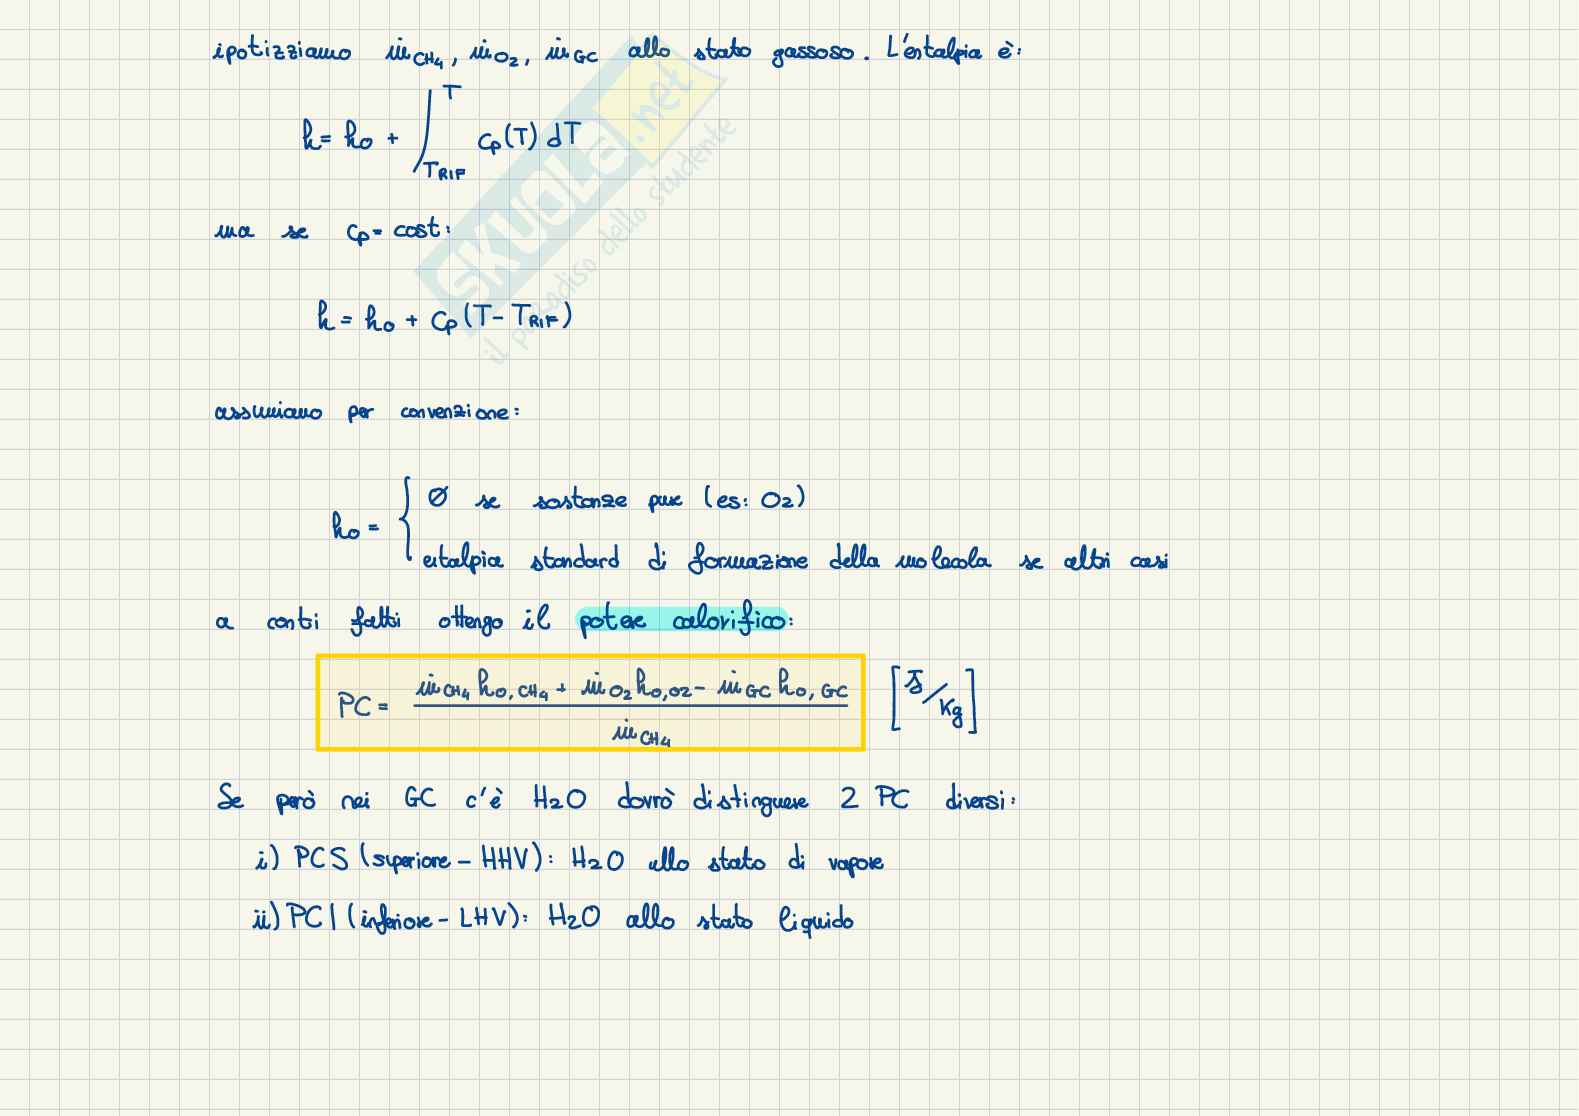 ipotizziamo ṁCH₄, ṁO₂, ṁGC allo stato gassoso. L'entalpia è:
h = h₀ + ∫_{TRIF}^{T} cp(T) dT
ma se cp = cost:
h = h₀ + cp(T - TRIF)
assumiamo per convenzione:
h₀ = { Ø se sostanze pure (es: O₂)
entalpia standard di formazione della molecola se altri casi
a conti fatti ottengo il potere calorifico:
PC = (ṁCH₄ h₀,CH₄ + ṁO₂ h₀,O₂ - ṁGC h₀,GC) / ṁCH₄ [J/Kg]
Se però nei GC c'è H₂O dovrò distinguere 2 PC diversi:
i) PCS (superiore - HHV): H₂O allo stato di vapore
ii) PCI (inferiore - LHV): H₂O allo stato liquido
SKUOLA.net
il paradiso dello studente